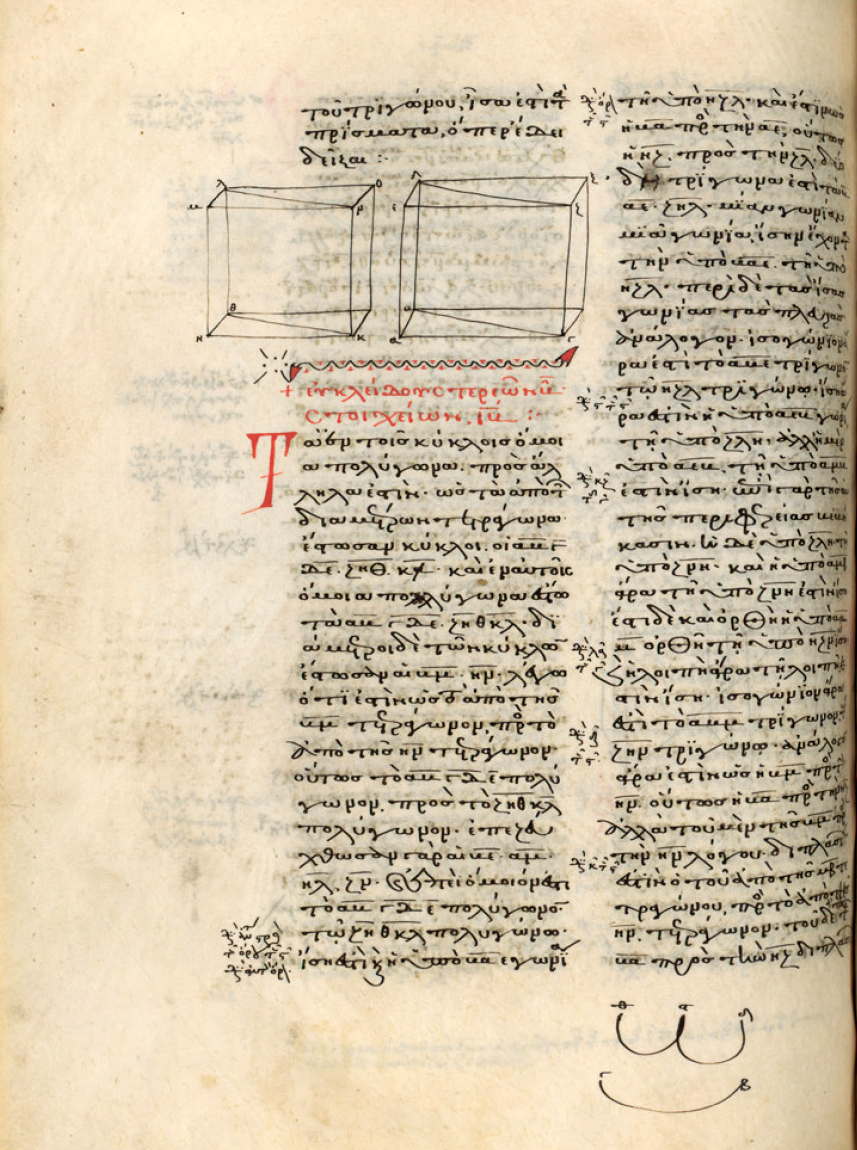 τοῦ τριγώνου, ἴσα ἐστὶ τὰ
πρίσματα, ὅπερ ἔδει
δεῖξαι :
μ λ ο ν
η θ κ
+ εὐκλείδου στερεῶν
στοιχείων, ιβ :
Τὰ ἐν τοῖς κύκλοις ὅμοι
α πολύγωνα, πρὸς ἄλ
ληλα ἐστὶν· ὡς τὰ ἀπὸ τ
διαμέτρων τετράγωνα·
ἔστωσαν κύκλοι, οἱ αβγ
δε· ζηθ κλ· καὶ ἐν αὐτοῖς
ὅμοια πολύγωνα ἔστω
τὰ αβγδε· ζηθκλ· δι
άμετροι δὲ τῶν κύκλω
ἔστωσαν αἱ βμ· ην· λέγω
ὅτι ἐστὶν ὡς τὸ ἀπὸ τῆς
βμ τετράγωνον, πρὸς τὸ
ἀπὸ τῆς ην τετράγωνον·
οὕτως τὸ αβγδε πολύ
γωνον, πρὸς τὸ ζηθκλ
πολύγωνον· ἐπεζεύ
χθωσαν γὰρ αἱ βε· αμ·
ηλ, ζν· καὶ ἐπεὶ ὅμοιόν ἐστι
τὸ αβγδε πολύγωνο
τῷ ζηθκλ πολυγώνω·
ἴση ἐστὶ καὶ ἡ ὑπὸ βαε γωνί
τῆ ὑπὸ ηζλ· καὶ ἔστιν ὡς
ἡ βα πρὸς τὴν αε, οὕτως
ἡ ηζ, πρὸς τὴν ζλ· δύο
δὴ τρίγωνα ἐστὶ τὰ β
αε· ζηλ· μίαν γωνίαν
μιᾶ γωνία, ἴσην ἔχοντα
τὴν ὑπὸ βαε, τῆ ὑπὸ
ηζλ· περὶ δὲ τὰς ἴσας
γωνίας τὰς πλευρὰς
ἀνάλογον· ἰσογώνιον ἄ
ρα ἐστὶ τὸ αβε τρίγων
τῶ ηζλ τριγώνω· ἴση ἄ
ρα ἐστὶν ἡ ὑπὸ αεβ γωνί
τῆ ὑπὸ ζλη· ἀλλ' ἡ μὲν
ὑπὸ αεβ, τῆ ὑπὸ αμβ
ἐστὶν ἴση· ἐπὶ γὰρ τῆς αὐ
τῆς περιφερείας βεβή
κασιν· ἡ δὲ ὑπὸ ζλη τῆ
ὑπὸ ζνη· καὶ ἡ ὑπὸ αμβ
ἄρα τῆ ὑπὸ ζνη ἐστὶν ἴση
ἔστι δὲ καὶ ὀρθὴ ἡ ὑπὸ βα
μ ὀρθῆ τῆ ὑπὸ ηζν ἴση
καὶ ἡ λοιπὴ ἄρα τῆ λοιπῆ ἐ
στὶν ἴση· ἰσογώνιον ἄρα
ἐστὶ τὸ αβμ τρίγωνον,
ζην τριγώνω· ἀνάλογον
ἄρα ἐστὶν ὡς ἡ βμ πρὸς τ
ην, οὕτως ἡ βα πρὸς τὴν ηζ
ἀλλὰ τοῦ μὲν τῆς βμ πρὸς
τὴν ην λόγου· διπλασί
ἐστὶν ὁ τοῦ ἀπὸ τῆς βμ τε
τραγώνου, πρὸς τὸ ἀπὸ τῆς
ην, τετράγωνον· τοῦ δὲ τῆς
βα πρὸς τὴν ηζ διπλασ